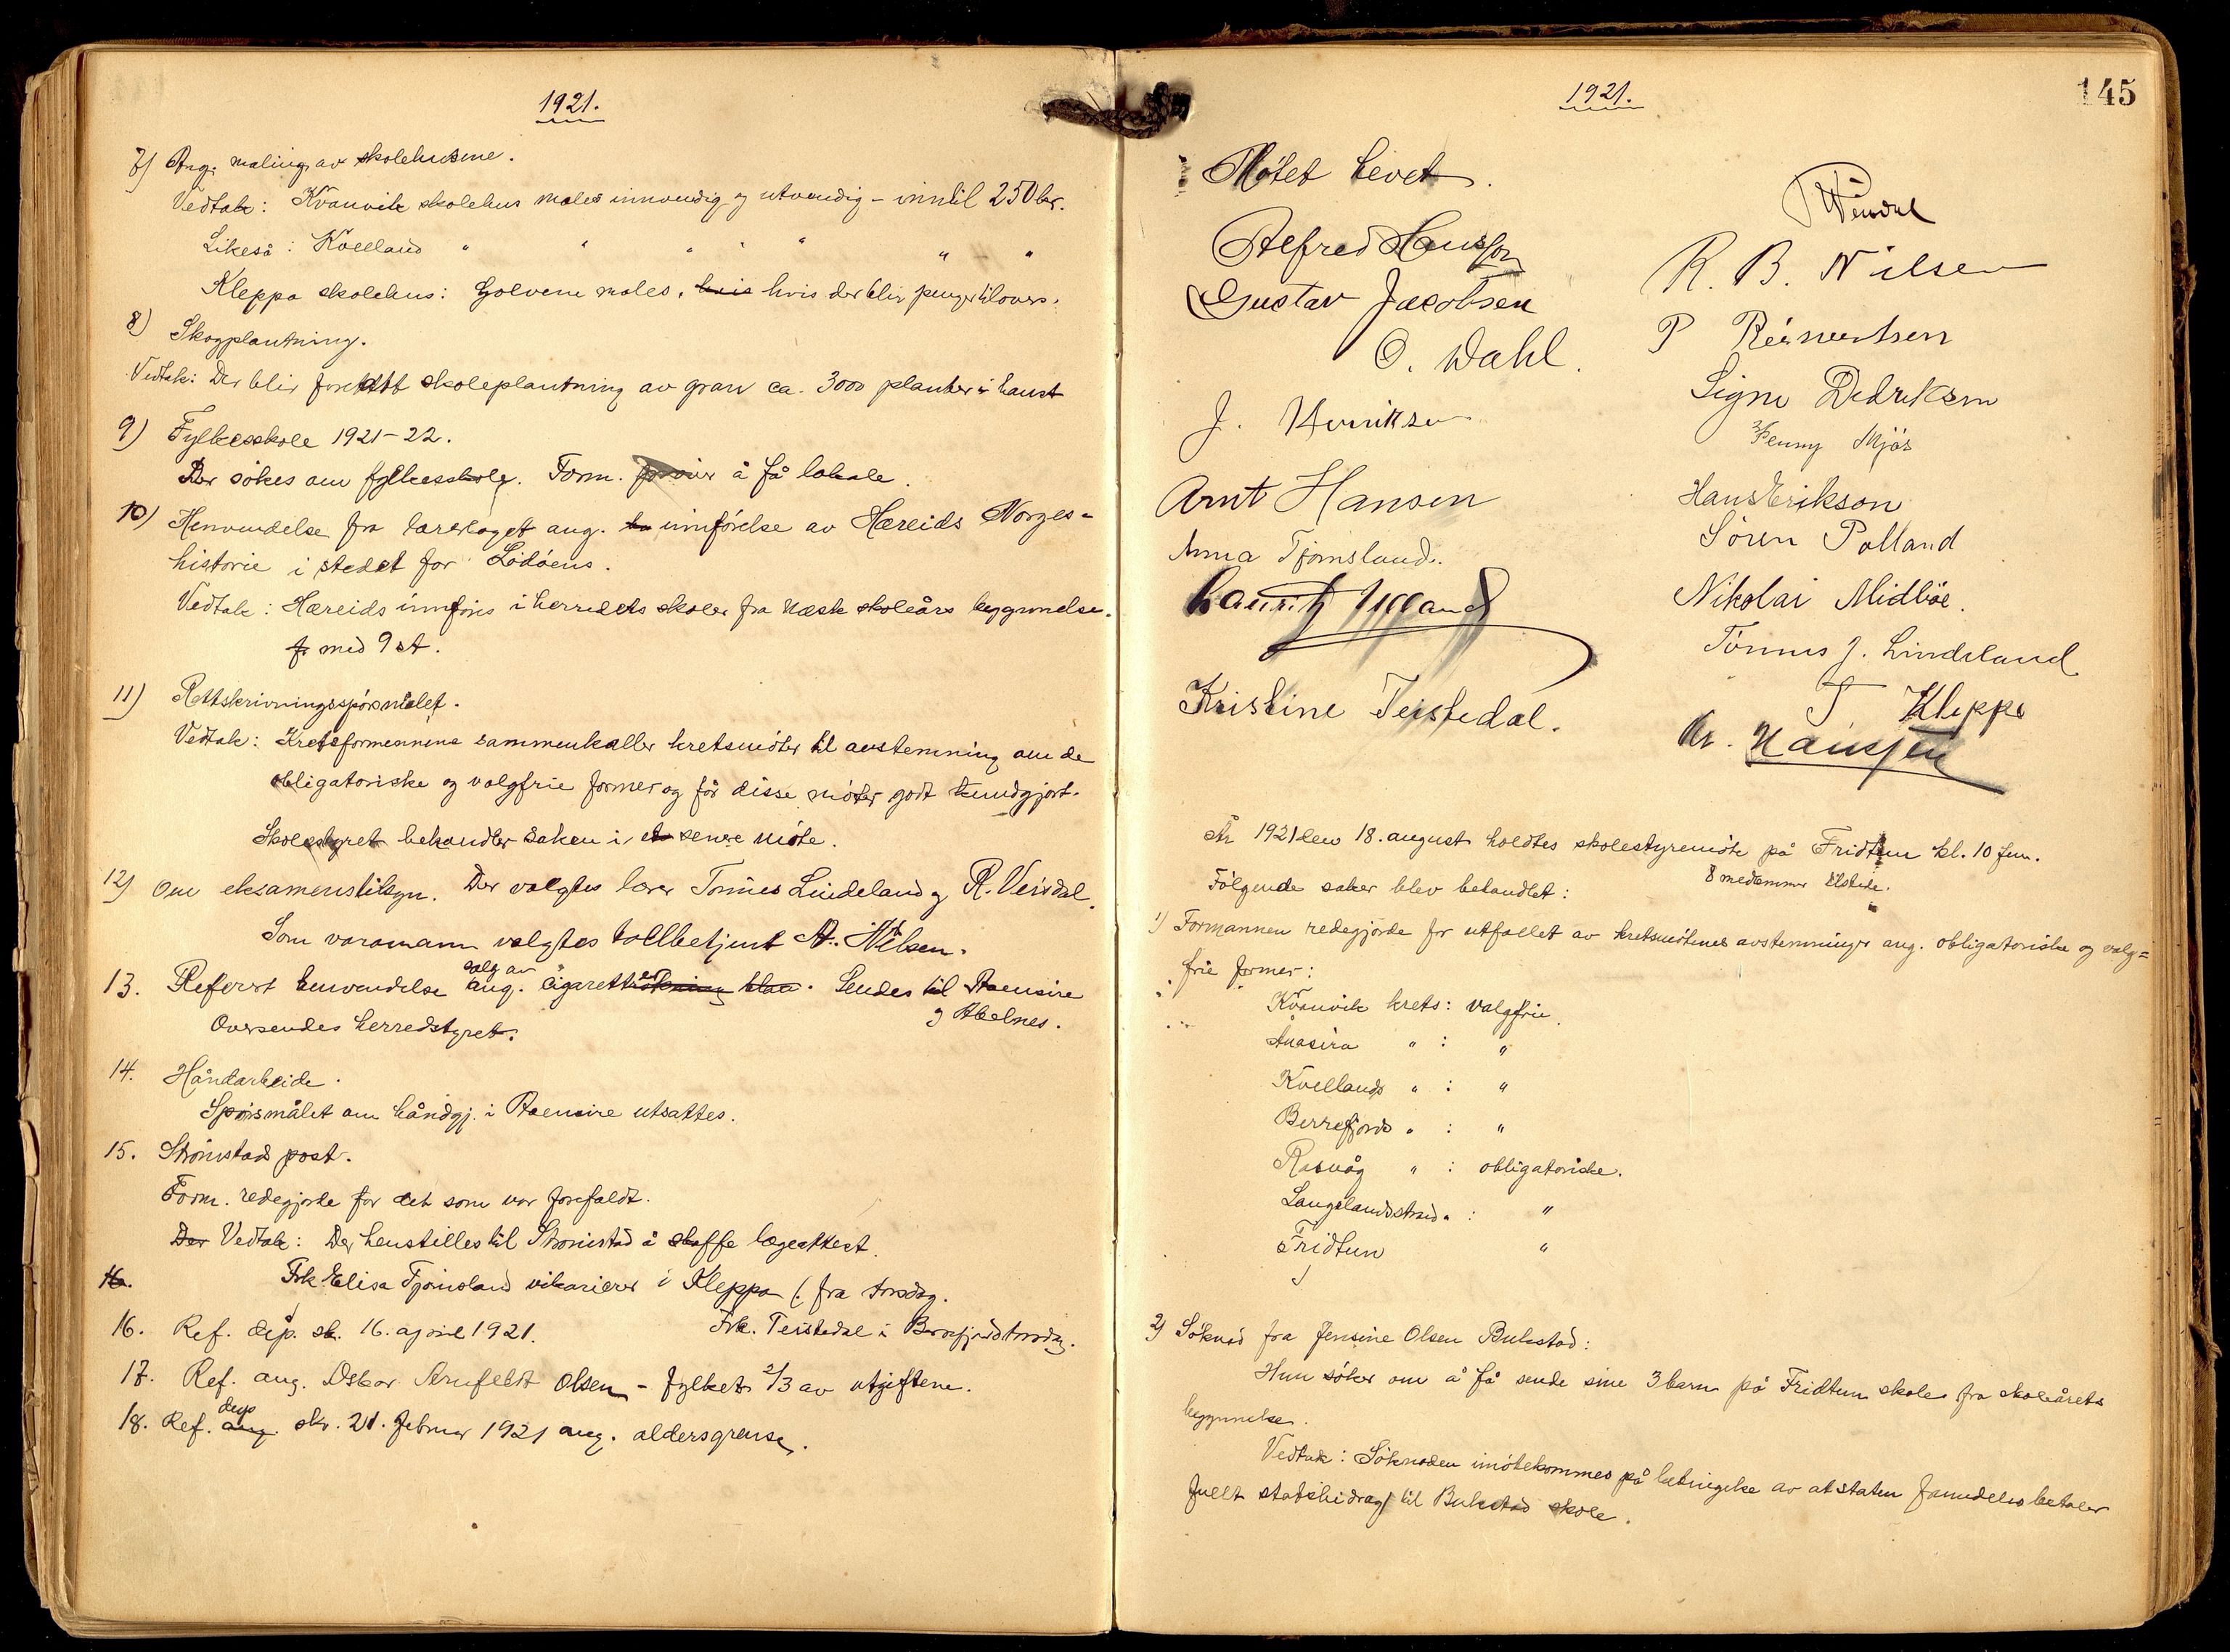 1921.
7) Ang. maling av skolehusene.
Vedtak: Kvanvik skolehus males innvendig og utvendig - inntil 250 kr.
Likeså: Kvelland " " " " " "
Kleppa skolehus: Golvene males, hvis hvis der blir penger tilovers.
8) Skogplantning.
Vedtak: Der blir foretatt skoleplantning av gran ca. 3000 planter i haust
9) Fylkesskole 1921-22.
Der sökes om fylkesskole. Form. prøver å få lokale.
10) Henvendelse fra lærerlaget ang. innförelse av Hæreids Norges=
historie i stedet for Lödöens.
Vedtak: Hæreids innföres i herredets skoler fra næste skoleårs begynnelse.
fr med 9 st.
11) Rettskrivningsspörsmålet.
Vedtak: Kretsformennene sammenkaller kretsmöter til avstemning om de
obligatoriske og valgfrie former og får disse möter godt kundgjort.
Skolestyret behandler saken i et senere möte.
12) Om eksamenstilsyn. Der valgtes lærer Tönnes Lindeland og R. Veisdal.
Som varamann valgtes tollbetjent A. Nilsen.
13. Referert henvendelse ang. salg av cigaretter. Sendes til Aaensire
og Abelnes.
Oversendes herredstyret.
14. Håndarbeide.
Spörsmålet om håndgj. i Aaensire utsattes.
15. Strömstads post.
Form. redegjorde for det som var forefaldt.
Der Vedtak: Der henstilles til Strömstad å skaffe lægeattest.
16. Frk Elisa Tjömsland vikarierer i Kleppa (: fra torsdag.
16. Ref. dep. sk. 16. april 1921. Frk. Teistedal i Berrefjord torsdag.
17. Ref. ang. Oskar Arnfeldt Olsen - fylket 2/3 av utgiftene.
18. Ref. ang. dep skr. 21. februar 1921 ang. aldersgrense.
1921.
145
Mötet hevet.
Alfred Hansson
Gustav Jacobsen
O. Dahl.
J. Henriksen
Arnt Hansen
Anna Tjömsland.
Lauritz
Kristine Teistedal.
R Veisdal
R. B. Nilsen
P Reinertsen
Signe Didriksen
Jenny Mjös
Hans Erikson
Sören Polland
Nikolai Midböe.
Tönnes J. Lindeland
T Kleppe
Kr. Hanssen
År 1921 den 18. august holdtes skolestyremöte på Fridtun kl. 10 fm.
8 medlemmer tilstede.
Fölgende saker blev behandlet:
1) Formannen redegjorde for utfallet av kretsmötenes avstemninger ang. obligatoriske og valg=
frie former:
Kvanvik krets: valgfrie.
Ånasira " : "
Kvellands " : "
Berrefjords " : "
Rasvåg " : obligatoriske.
Langelandsstrand " : "
Fridtun "
2) Söknad fra Jensine Olsen Bukstad:
Hun söker om å få sende sine 3 barn på Fridtun skole fra skoleårets
begynnelse.
Vedtak: Söknaden imötekommes på betingelse av at staten fremdeles betaler
fullt statsbidrag til Bukstad skole.